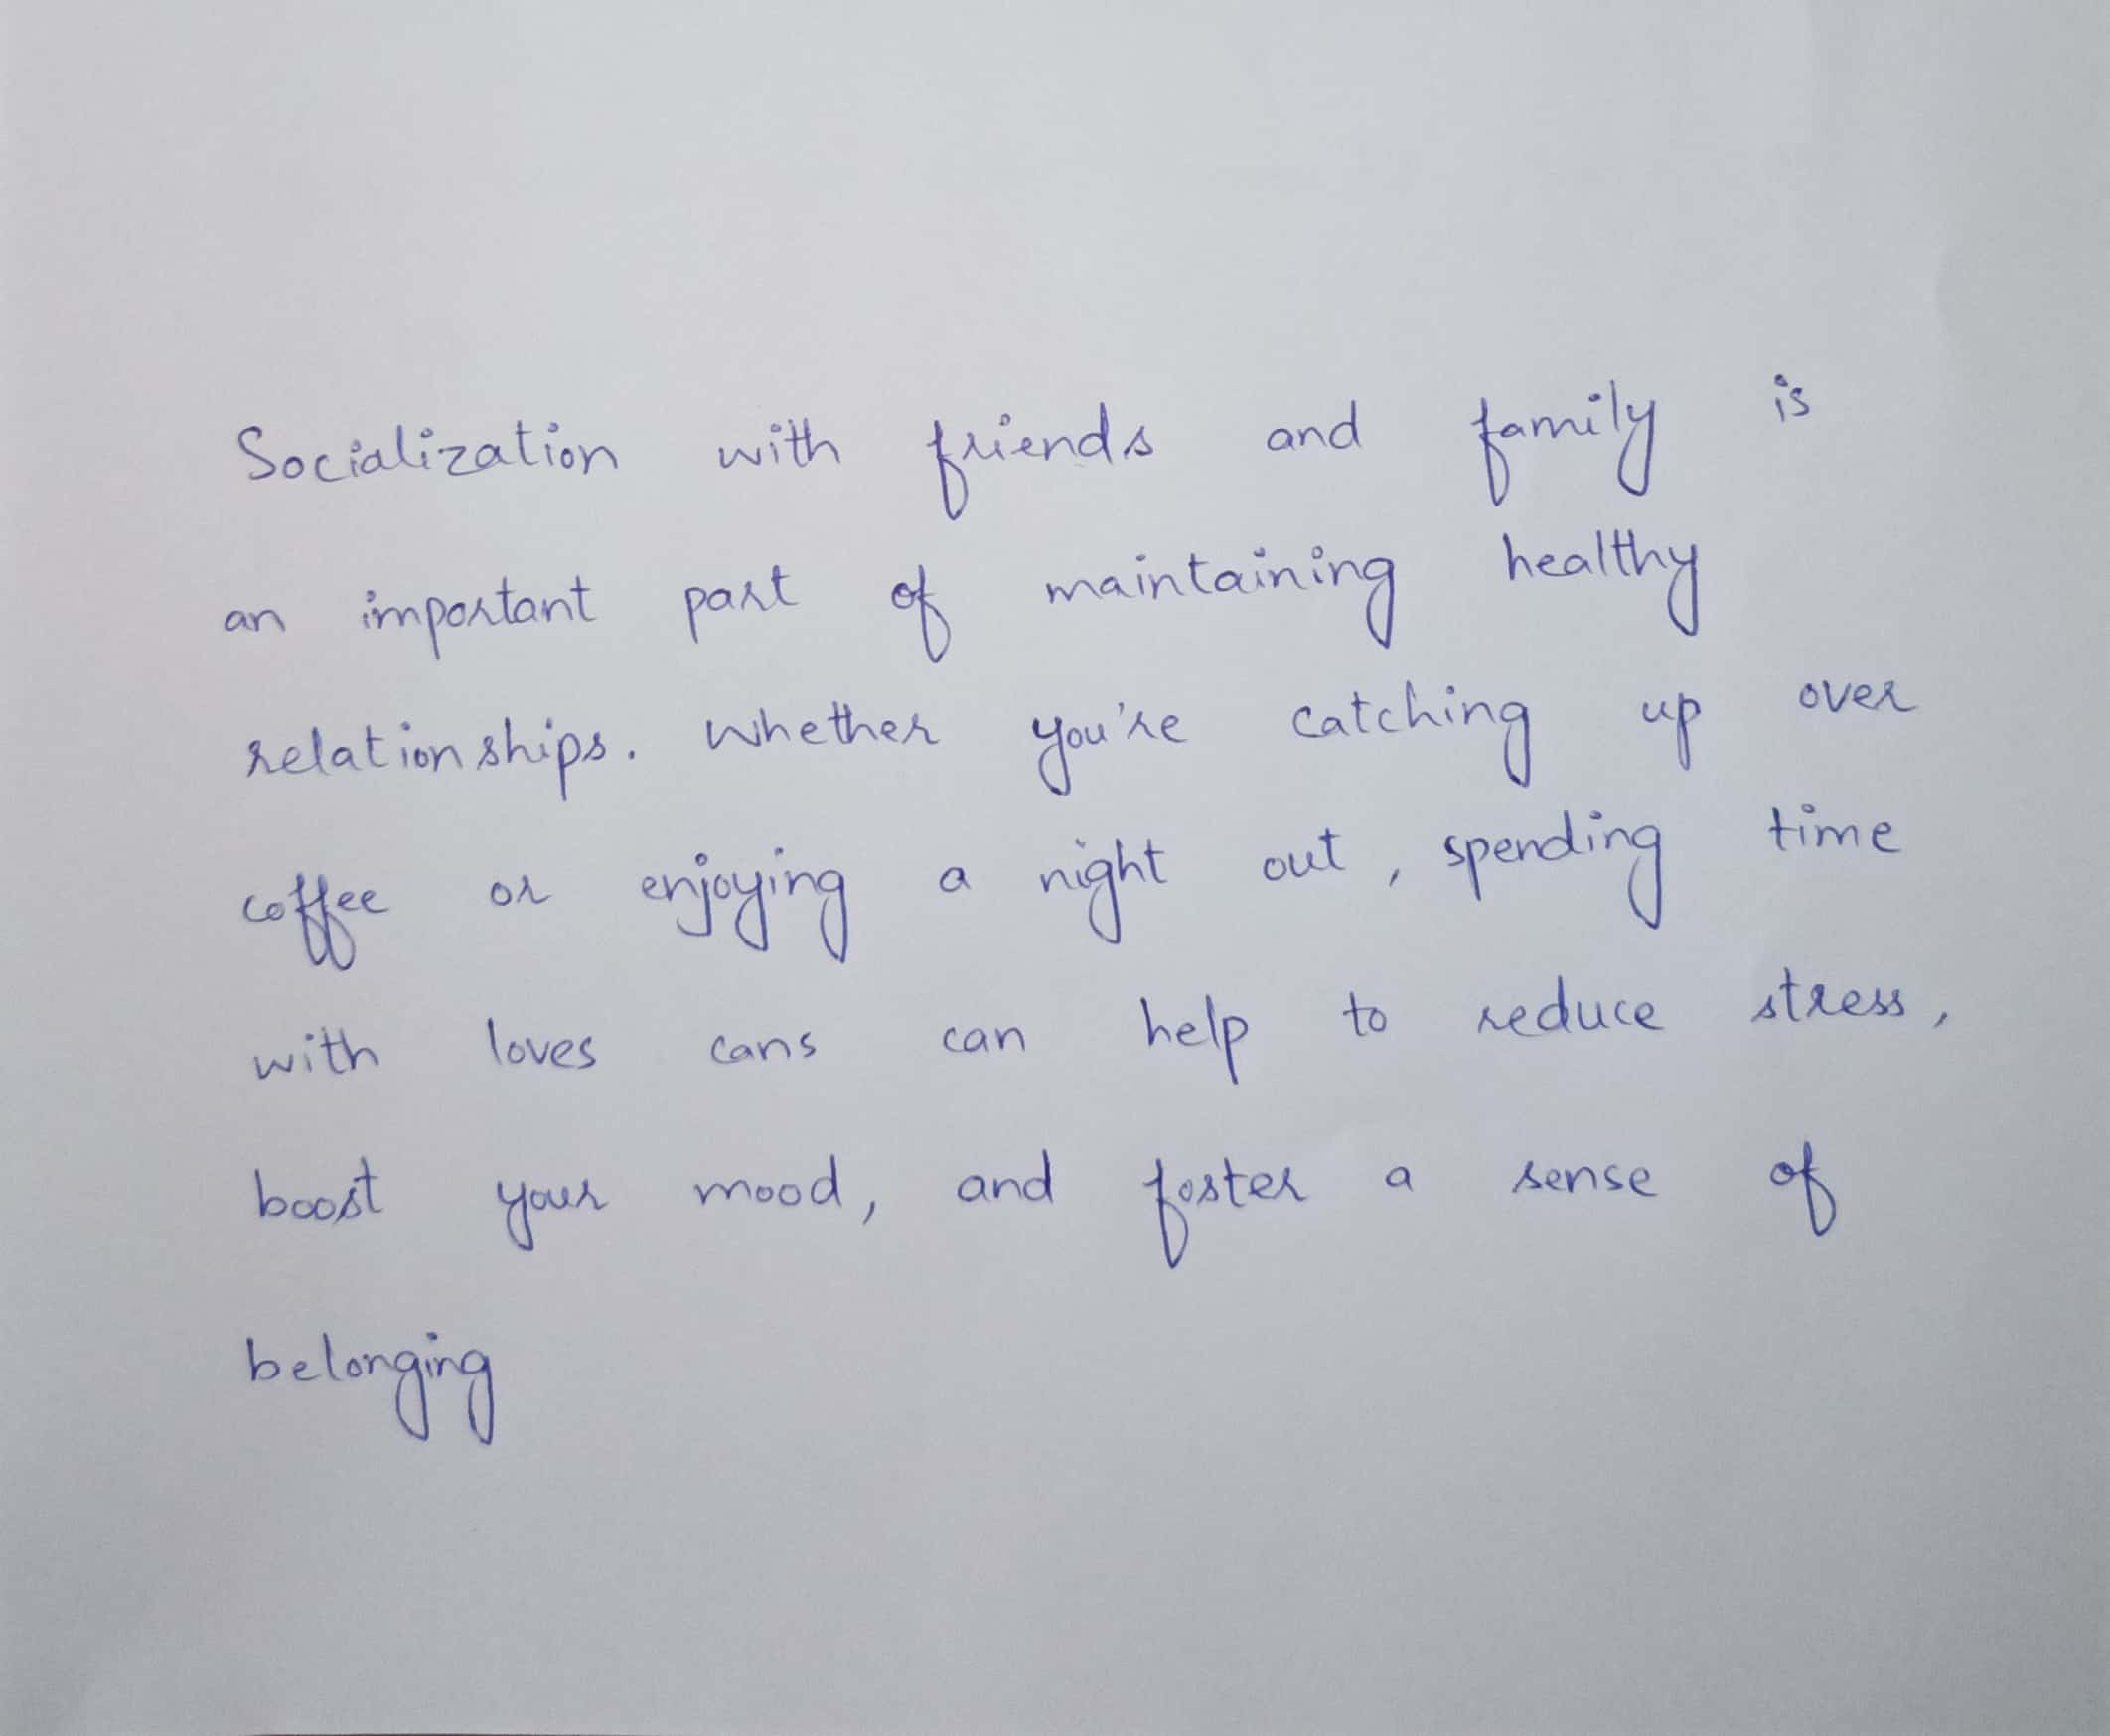 Socialization with friends and family is
an important part of maintaining healthy
relationships. Whether you're catching up over
coffee or enjoying a night out, spending time
with loves cans can help to reduce stress,
boost your mood, and foster a sense of
belonging